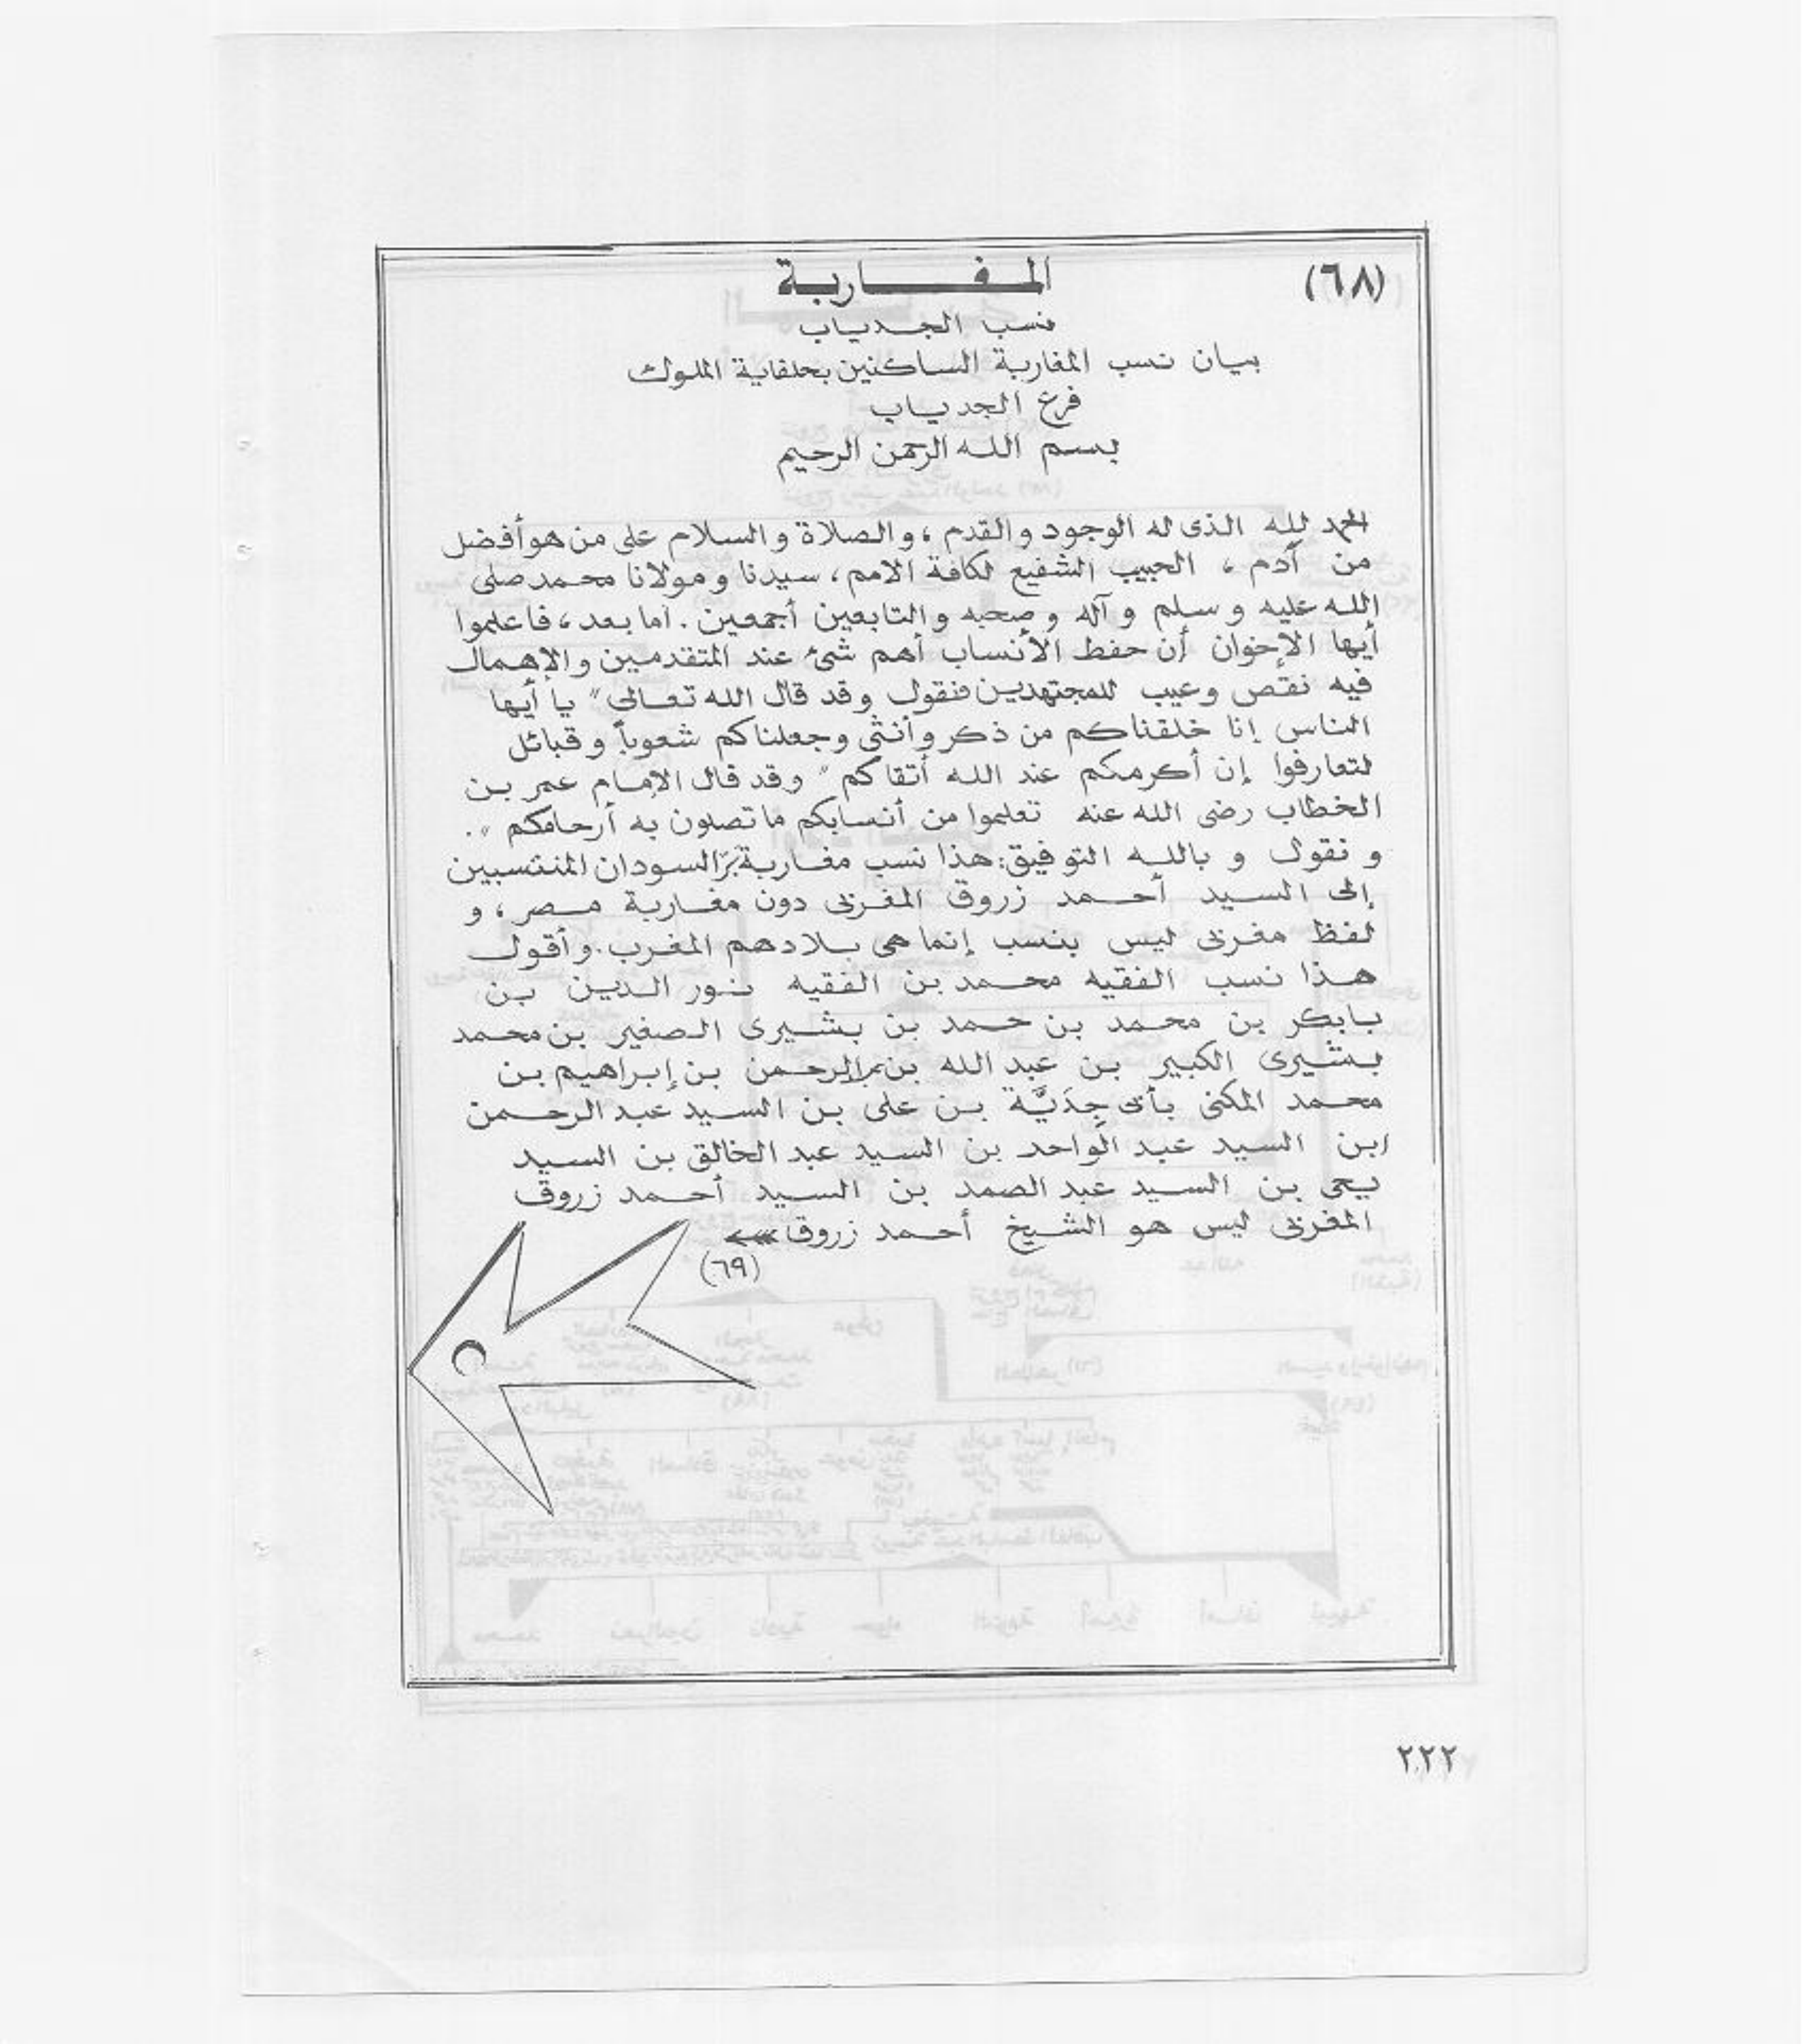 (٦٨)
المغاربة
نسب الجدياب
بيان نسب المغاربة الساكنين بحلفاية الملوك
فرع الجدياب
بسم الله الرحمن الرحيم
الحمد لله الذى له الوجود والقدم ، والصلاة والسلام على من هو أفضل
من آدم ، الحبيب الشفيع لكافة الامم ، سيدنا ومولانا محمد صلى
الله عليه وسلم وآله وصحبه والتابعين أجمعين . اما بعد ، فاعلموا
أيها الإخوان أن حفط الأنساب أهم شئ عند المتقدمين والإهمال
فيه نقص وعيب للمجتهدين فنقول وقد قال الله تعالى " يا أيها
الناس إنا خلقناكم من ذكر وأنثى وجعلناكم شعوباً وقبائل
لتعارفوا إن أكرمكم عند الله أتقاكم " وقد قال الإمام عمر بن
الخطاب رضى الله عنه تعلموا من أنسابكم ما تصلون به أرحامكم " .
و نقول و بالله التوفيق : هذا نسب مغاربة برّ السودان المنتسبين
إلى السيد أحمد زروق المغربى دون مغاربة مصر ، و
لفظ مغربى ليس بنسب إنما هى بلادهم المغرب . وأقول
هذا نسب الفقيه محمد بن الفقيه نور الدين بن
بابكر بن محمد بن حمد بن بشيرى الصغير بن محمد
بشيرى الكبير بن عبد الله بن الرحمن بن إبراهيم بن
محمد المكنى بأبى جِدَيَّة بن على بن السيد عبد الرحمن
ابن السيد عبد الواحد بن السيد عبد الخالق بن السيد
يحى بن السيد عبد الصمد بن السيد أحمد زروق
المغربى ليس هو الشيخ أحمد زروق
(٦٩)
٢٢٢